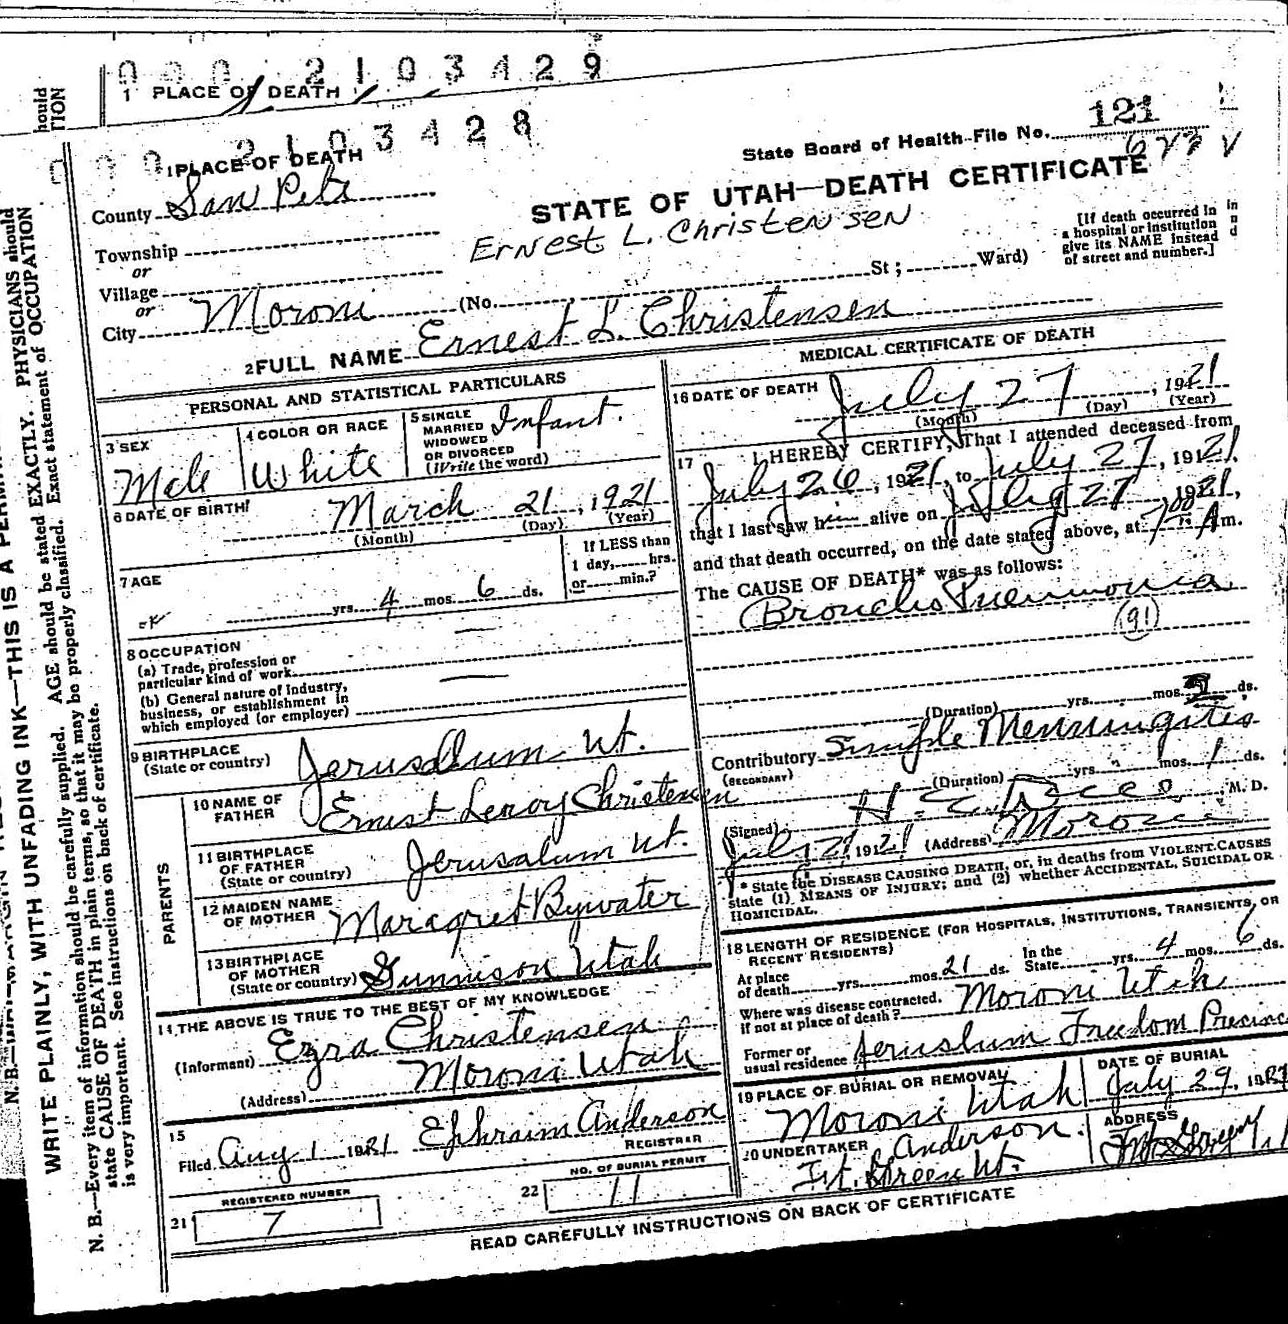 0 0 0 2 1 0 3 4 2 9
1 PLACE OF DEATH
0 0 0 2 1 0 3 4 2 8
1 PLACE OF DEATH
State Board of Health-File No. 121
County San Pete
STATE OF UTAH—DEATH CERTIFICATE
Ernest L. Christensen
Township
or
Village
or
City Moroni (No. St; Ward)
[If death occurred in
a hospital or institution
give its NAME instead
of street and number.]
2 FULL NAME Ernest L. Christensen
PERSONAL AND STATISTICAL PARTICULARS
3 SEX
Male
4 COLOR OR RACE
White
5 SINGLE
MARRIED
WIDOWED
OR DIVORCED
(Write the word)
Infant.
6 DATE OF BIRTH
March 21, 1921
(Month) (Day) (Year)
7 AGE
yrs. 4 mos. 6 ds.
If LESS than
1 day, hrs.
or min.?
8 OCCUPATION
(a) Trade, profession or
particular kind of work
(b) General nature of industry,
business, or establishment in
which employed (or employer)
9 BIRTHPLACE
(State or country)
Jerusalum Ut.
PARENTS
10 NAME OF
FATHER
Ernest Leroy Christensen
11 BIRTHPLACE
OF FATHER
(State or country)
Jerusalum Ut.
12 MAIDEN NAME
OF MOTHER
Margret Bywater
13 BIRTHPLACE
OF MOTHER
(State or country)
Gunnison Utah
14 THE ABOVE IS TRUE TO THE BEST OF MY KNOWLEDGE
(Informant) Ezra Christensen
(Address) Moroni Utah
15
Filed Aug 1 1921 Ephraim Anderson
REGISTRAR
21 REGISTERED NUMBER
7
22 NO. OF BURIAL PERMIT
11
MEDICAL CERTIFICATE OF DEATH
16 DATE OF DEATH
July 27, 1921
(Month) (Day) (Year)
17 I HEREBY CERTIFY, That I attended deceased from
July 26, 1921, to July 27, 1921,
that I last saw him alive on July 27, 1921,
and that death occurred, on the date stated above, at 7:00 A m.
The CAUSE OF DEATH* was as follows:
Broncho Pneumonia
(91)
(Duration) yrs. mos. ds.
Contributory Simple Menningites
(SECONDARY)
(Duration) yrs. mos. 1 ds.
(Signed) H. C. M. D.
July 1921 (Address) Moroni
* State the DISEASE CAUSING DEATH, or, in deaths from VIOLENT CAUSES
state (1) MEANS OF INJURY; and (2) whether ACCIDENTAL, SUICIDAL OR
HOMICIDAL.
18 LENGTH OF RESIDENCE (FOR HOSPITALS, INSTITUTIONS, TRANSIENTS, OR
RECENT RESIDENTS)
At place
of death yrs. mos. 21 ds.
In the
State yrs. 4 mos. 6 ds.
Where was disease contracted,
if not at place of death? Moroni Utah
Former or
usual residence Jeruslum Freedom Precinc
19 PLACE OF BURIAL OR REMOVAL
Moroni Utah
DATE OF BURIAL
July 29, 1921
20 UNDERTAKER Anderson.
Ft. Green Ut.
ADDRESS
READ CAREFULLY INSTRUCTIONS ON BACK OF CERTIFICATE
WRITE PLAINLY, WITH UNFADING INK—THIS IS A
N. B.—Every item of information should be carefully supplied. AGE should be stated EXACTLY. PHYSICIANS should
state CAUSE OF DEATH in plain terms, so that it may be properly classified. Exact statement of OCCUPATION
is very important. See instructions on back of certificate.